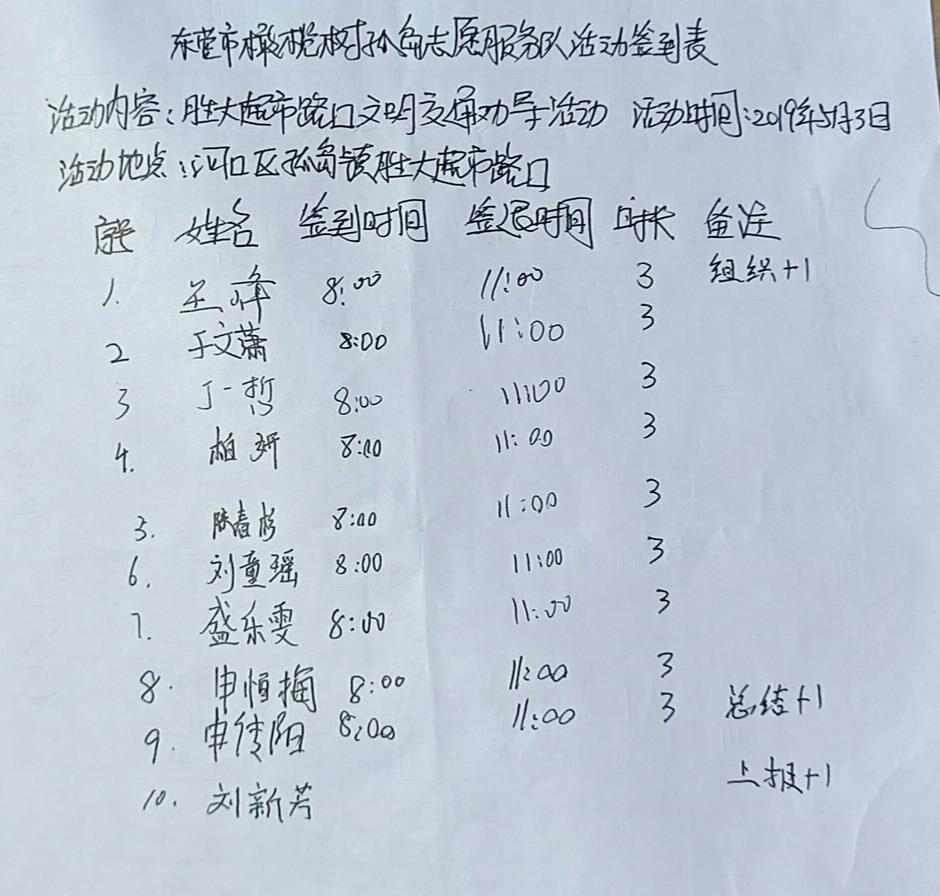 东营市橄榄树孤岛志愿服务队活动签到表
活动内容:胜大超市路口文明交通劝导活动 活动时间:2019年5月3日
活动地点:河口区孤岛镇胜大超市路口
序号 姓名 签到时间 签退时间 时长 备注
1. 王峰 8:00 11:00 3 组织+1
2 于文萧 8:00 11:00 3
3 丁一哲 8:00 11:00 3
4. 柏妍 8:00 11:00 3
5. 陈春杉 8:00 11:00 3
6. 刘童瑶 8:00 11:00 3
7. 盛乐雯 8:00 11:00 3
8. 申恒梅 8:00 11:00 3
9. 申传阳 8:00 11:00 3 总结+1
10. 刘新芳 上报+1